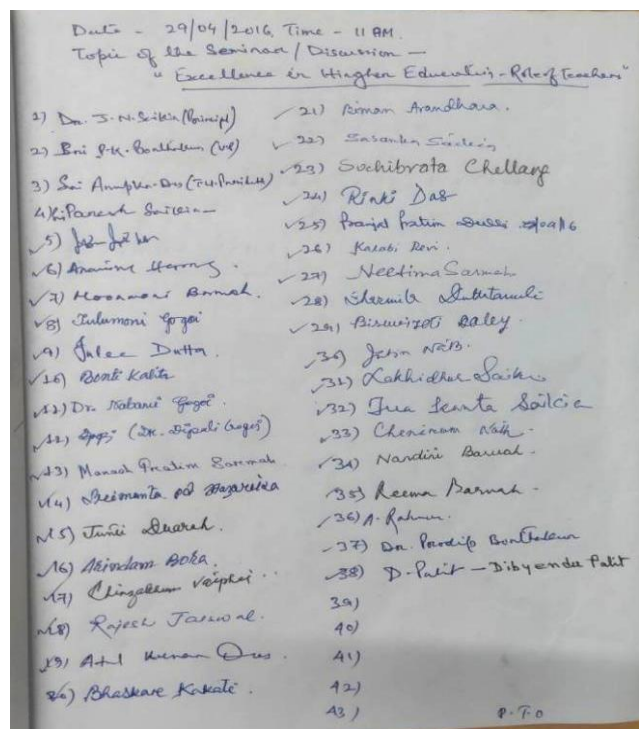 Date - 29/04/2016, Time - 11 AM.
Topic of the Seminar / Discussion —
"Excellence in Higher Education - Role of Teachers"
1) Dr. J. N. Saikia (Principal)
2) Sri P.K. Borthakur (VP)
3) Sri Das
4) Paresh Saikia
5)
6)
7) Moonmoni Bormah.
8) Julumoni Gogoi
9) Julee Dutta
10) Bonti Kalita
11) Dr. Gogoi.
12) (Dr. Dipali Gogoi)
13) Manash Pratim Sarmah
14) Hazarika
15) Duarah.
16) Arindam Borka.
17) Vaiphei
18) Rajesh Jaiswal.
19) Atul Kumar Das.
20) Bhaskar Kakati.
21) Biman Arandhara.
22) Sasanka Saikia
23) Suchibrata Chellang
24) Rinki Das
25) Pranjal Pratim
26) Karabi Devi.
27) Neetima Sarmah
28)
29) Daley.
30) Jatin
31) Lakhidhar Saikia
32) Saikia
33) Cheniram Nath.
34) Nandini Baruah.
35) Reema Baruah.
36) A. Rahman.
37) Dr. Pradip Borthakur
38) D. Palit — Dibyendu Palit
39)
40)
41)
42)
43)
P.T.O